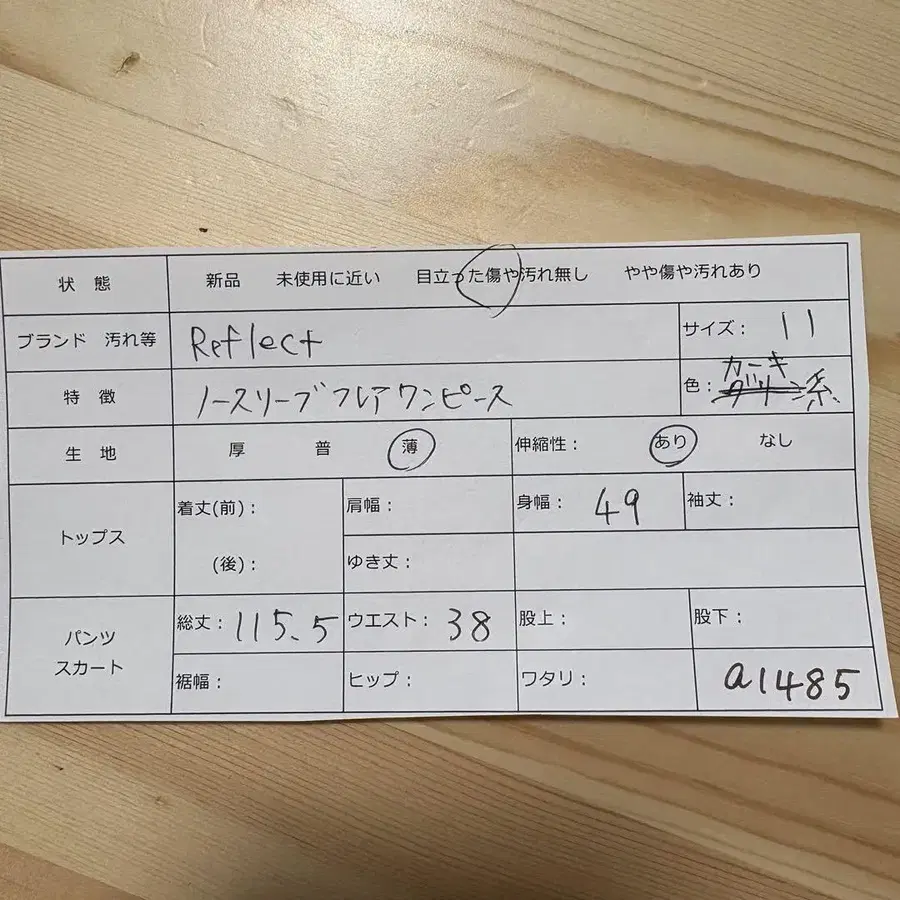 状 態 新品 未使用に近い 目立った傷や汚れ無し やや傷や汚れあり
ブランド 汚れ等 Reflect サイズ: 11
特 徴 ノースリーブフレアワンピース 色: カーキ
グリーン系
生 地 厚 普 薄 伸縮性: あり なし
トップス 着丈(前): 肩幅: 身幅: 49 袖丈:
(後): ゆき丈:
パンツ 総丈: 115.5 ウエスト: 38 股上: 股下:
スカート 裾幅: ヒップ: ワタリ: a1485